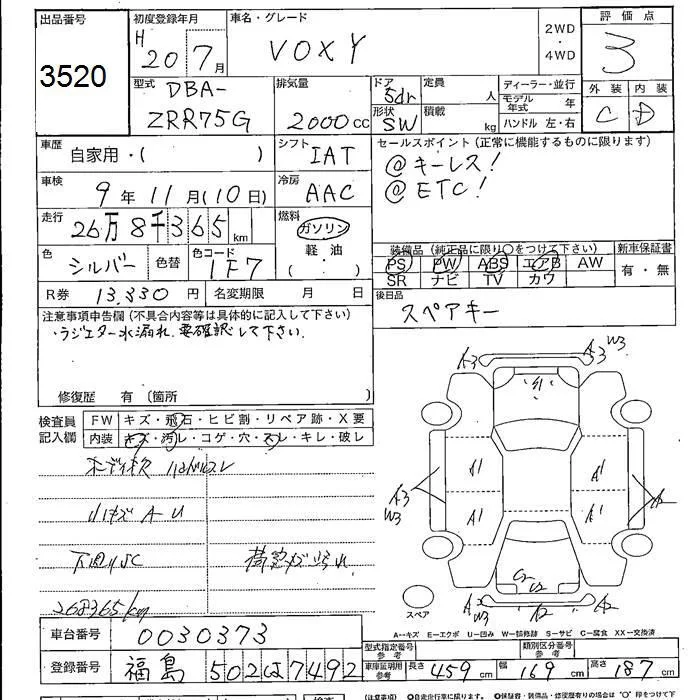 出品番号
3520
初度登録年月
H 20 7月
車名・グレード
VOXY
2WD
・
4WD
評価点
3
外装 内装
C D
型式
DBA-
ZRR75G
排気量
2000cc
ドア
5dr
形状
SW
定員
人
積載
kg
ディーラー・並行
モデル年式 年
ハンドル 左・右
車歴
自家用・( )
シフト
IAT
車検
9年11月(10日)
冷房
AAC
走行
26万8千365km
燃料
ガソリン
軽油
( ・ )
色
シルバー
色替
色コード
1F7
R券 13,330円
名変期限 月 日
セールスポイント(正常に機能するものに限ります)
@キーレス!
@ETC!
装備品(純正品に限り○をつけて下さい)
PS PW ABS エアB AW
SR ナビ TV カワ
新車保証書
有・無
後日品
スペアキー
注意事項申告欄(不具合内容等は具体的に記入して下さい)
・ラジエター水漏れ 要確認して下さい。
修復歴 有(箇所 )
検査員
記入欄
FW キズ・飛石・ヒビ割・リペア跡・X要
内装 キズ・汚レ・コゲ・穴・スレ・キレ・破レ
小キズ A U
268365km
A3
A3 W3
A1
A1
A1
A1
A3
W3
A2
スペア
A2
W3
A2
A2
A・・キズ E・・エクボ U・・凹み W・・補修跡 S・・サビ C・・腐食 XX・・交換済
車台番号
0030373
型式指定番号
参考
類別区分番号
参考
登録番号
福島 502は7492
車庫証明用
参考
長さ 459cm
幅 169cm
高さ 187cm